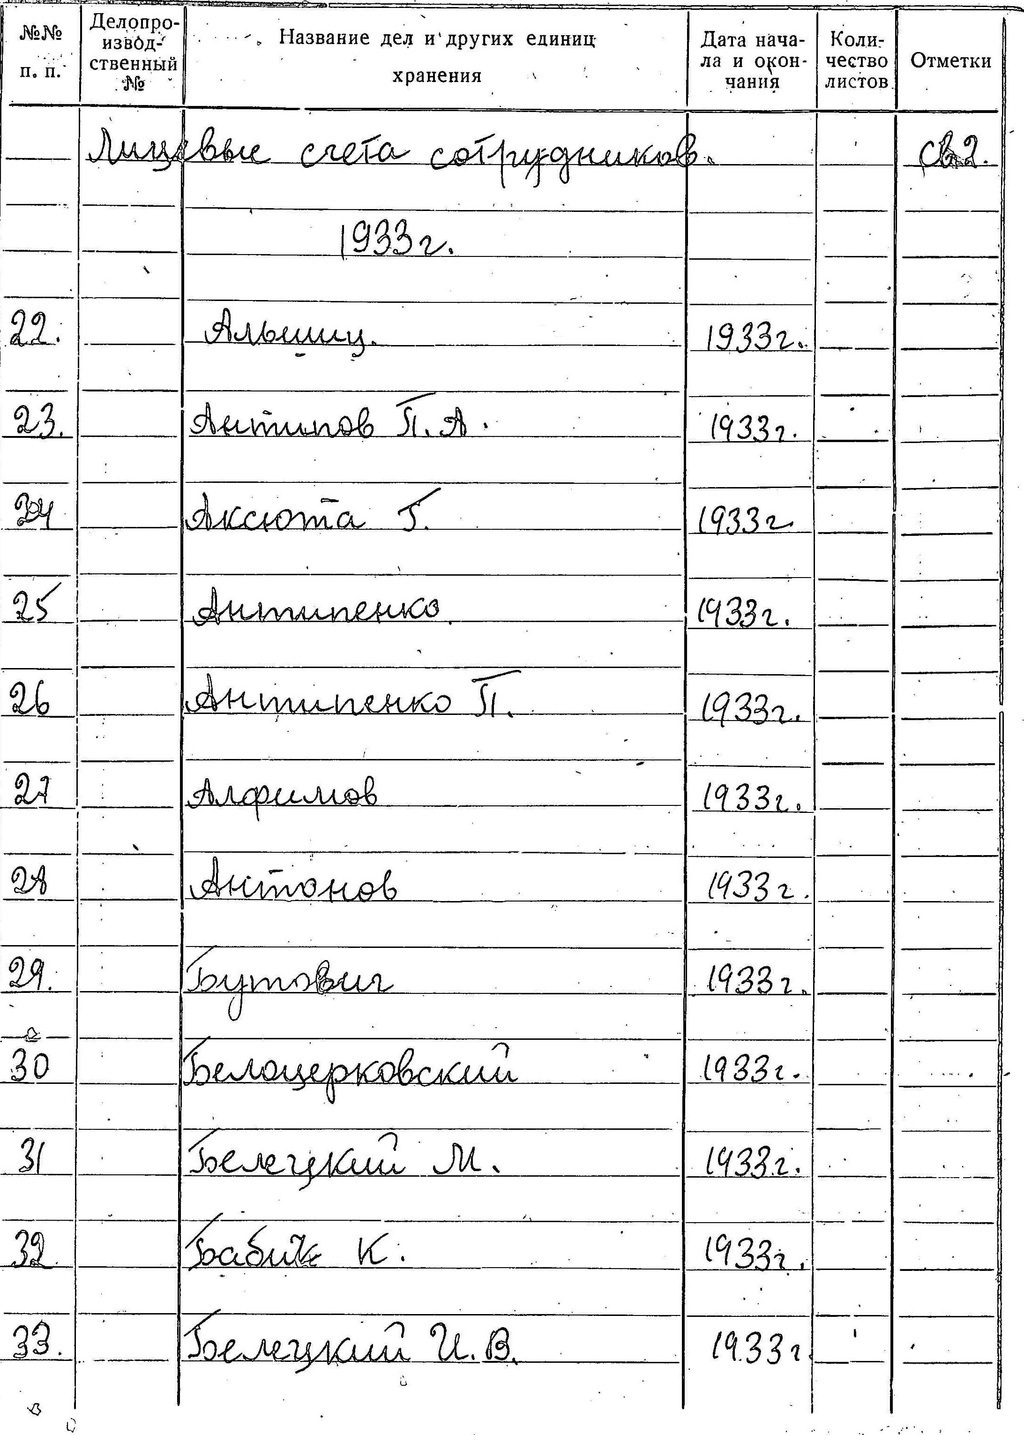 №№ п. п. | Делопро-извод-ственный № | Название дел и других единиц хранения | Дата нача-ла и окон-чания | Коли-чество листов | Отметки
Лицевые счета сотрудников. св2.
1933г.
22. Альшиц. 1933г.
23. Антипов П. А. 1933г.
24 Аксюта Г. 1933г
25 Антипенко 1933г.
26 Антипенко П. 1933г.
27 Алфимов 1933г.
28 Антонов 1933г.
29. Бутович 1933г.
30 Белоцерковский 1933г.
31 Белецкий М. 1933г.
32 Бабич К. 1933г.
33. Белецкий И. В. 1933г